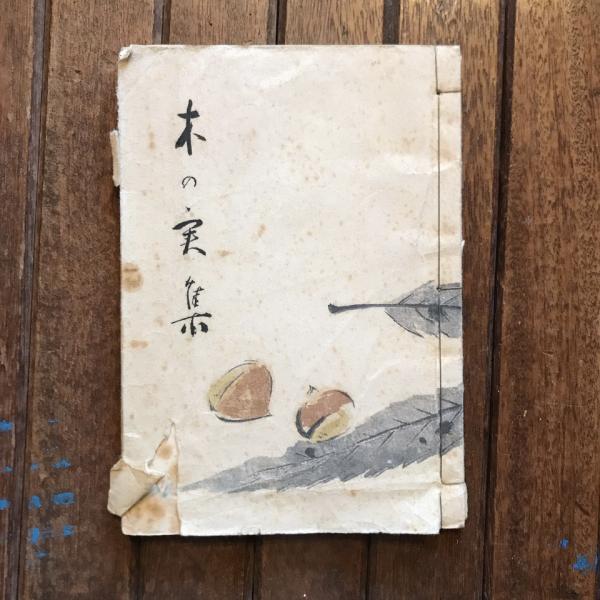 木の実集